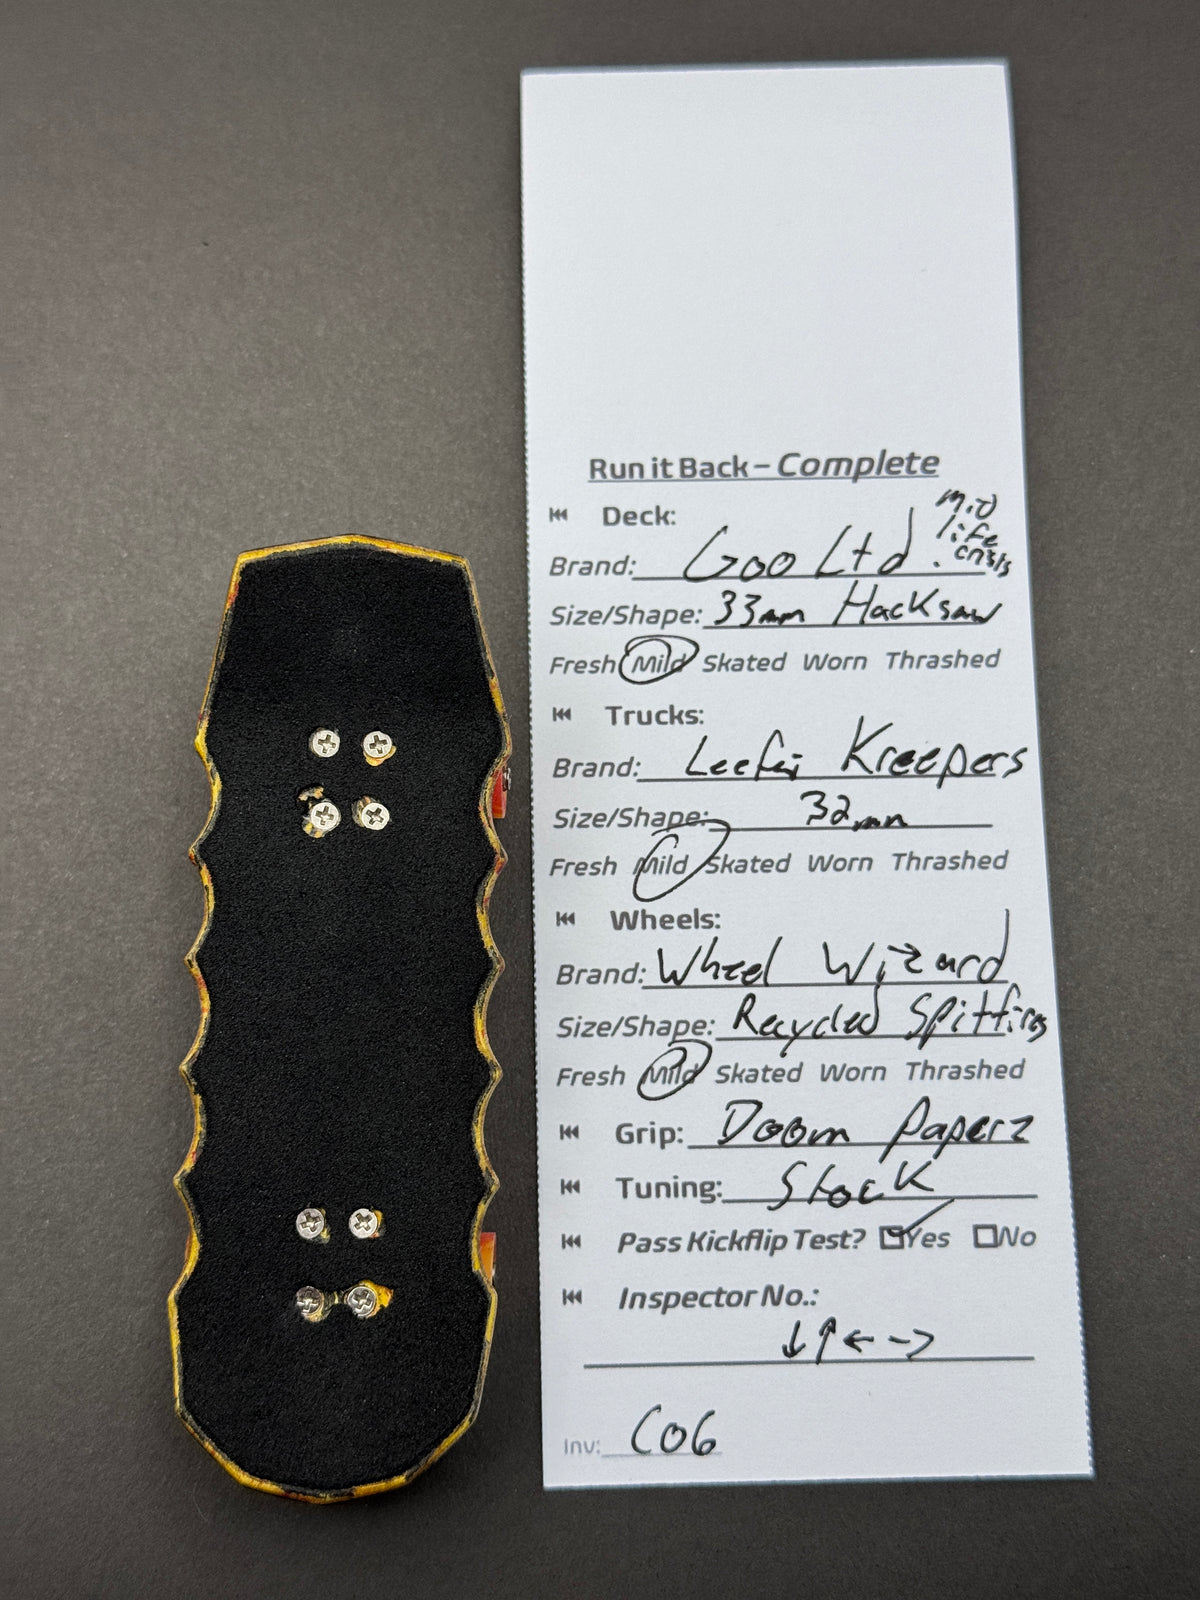 Run it Back – Complete
Deck:
Brand: Goo Ltd. mid life crisis
Size/Shape: 33mm Hacksaw
Fresh Mild Skated Worn Thrashed
Trucks:
Brand: Kreepers
Size/Shape: 32mm
Fresh Mild Skated Worn Thrashed
Wheels:
Brand: Wheel Wizard
Size/Shape: Recycled Spitfires
Fresh Mild Skated Worn Thrashed
Grip: Doom Paperz
Tuning: Stock
Pass Kickflip Test? Yes No
Inspector No.:
↓↑←->
Inv: C06